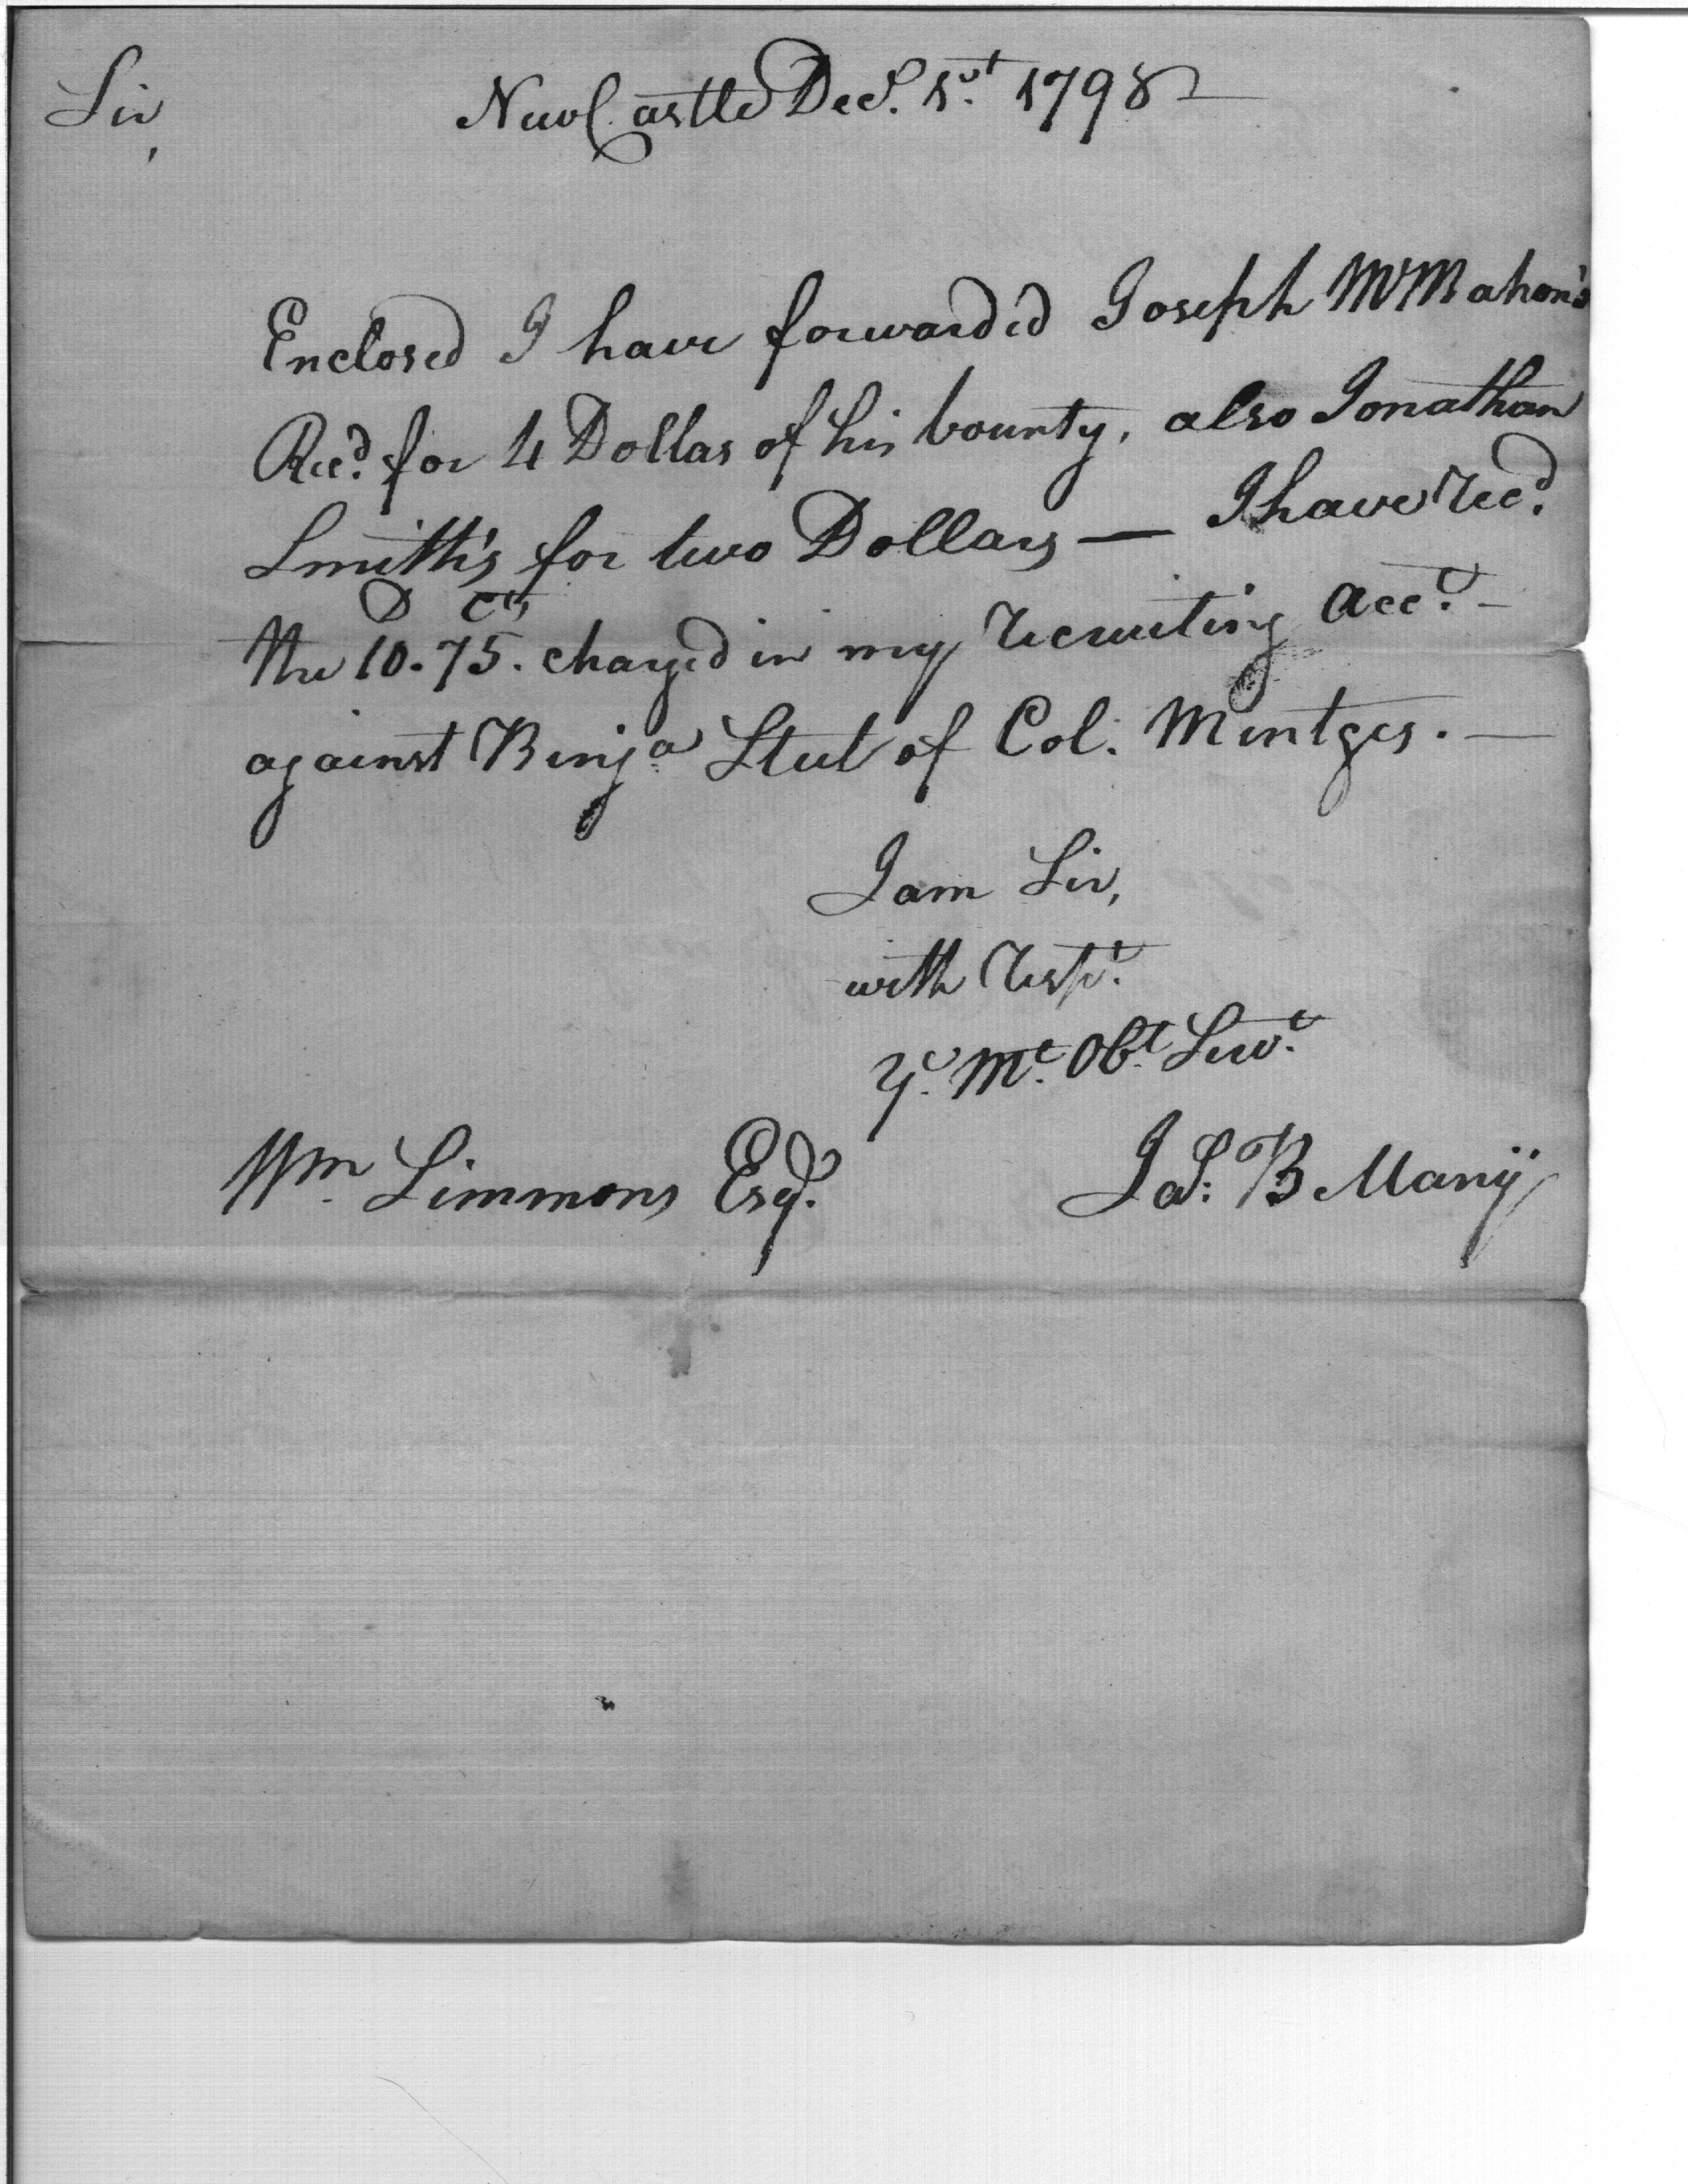 Sir,
New Castle Decr. 1st 1798
Enclosed I have forwarded Joseph McMahon's
Recd. for 4 Dollas of his bounty, also Jonathan
Smith's for two Dollars — I have recd.
D Cts
the 10.75. charged in my recruiting acct. —
against Benja Steel of Col. Mentges. —
I am Sir,
with respt.
Yr. Mt. Obt. Servt.
Wm Simmons Esqr.
Jas: B Many